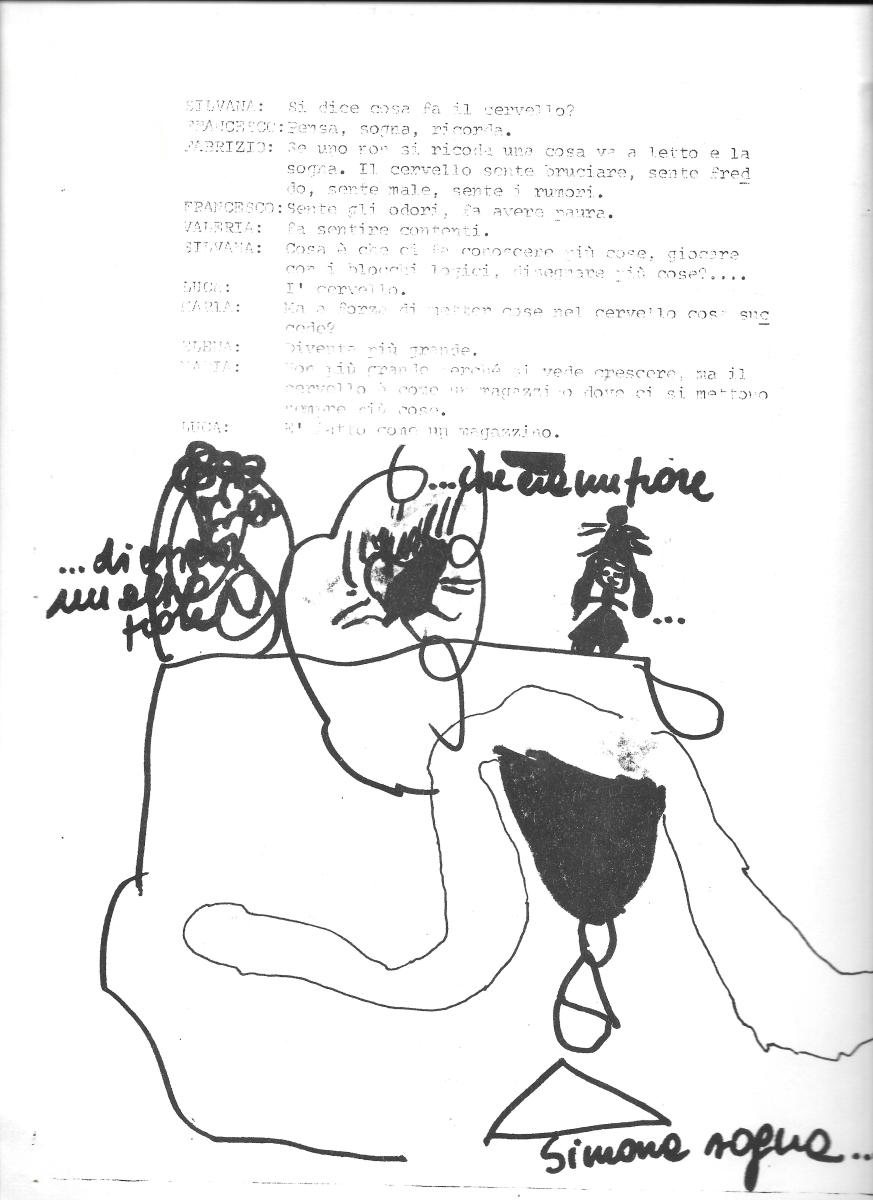 SILVANA: Si dice cosa fa il cervello?
FRANCESCO: Pensa, sogna, ricorda.
FABRIZIO: Se uno non si ricoda una cosa va a letto e la
sogna. Il cervello sente bruciare, sente fred
do, sente male, sente i rumori.
FRANCESCO: Sente gli odori, fa avere paura.
VALERIA: fa sentire contenti.
SILVANA: Cosa è che ci fa conoscere più cose, giocare
con i blocchi logici, disegnare più cose?....
LUCA: I' cervello.
MARIA: Ma a forza di metter cose nel cervello cosa suc
cede?
ELENA: Diventa più grande.
MARIA: Non più grande perché si vede crescere, ma il
cervello è come un magazzino dove ci si mettono
sempre più cose.
LUCA: E' fatto come un magazzino.
...che era un fiore
...di
un altro
fiore
...
Simona sogna...